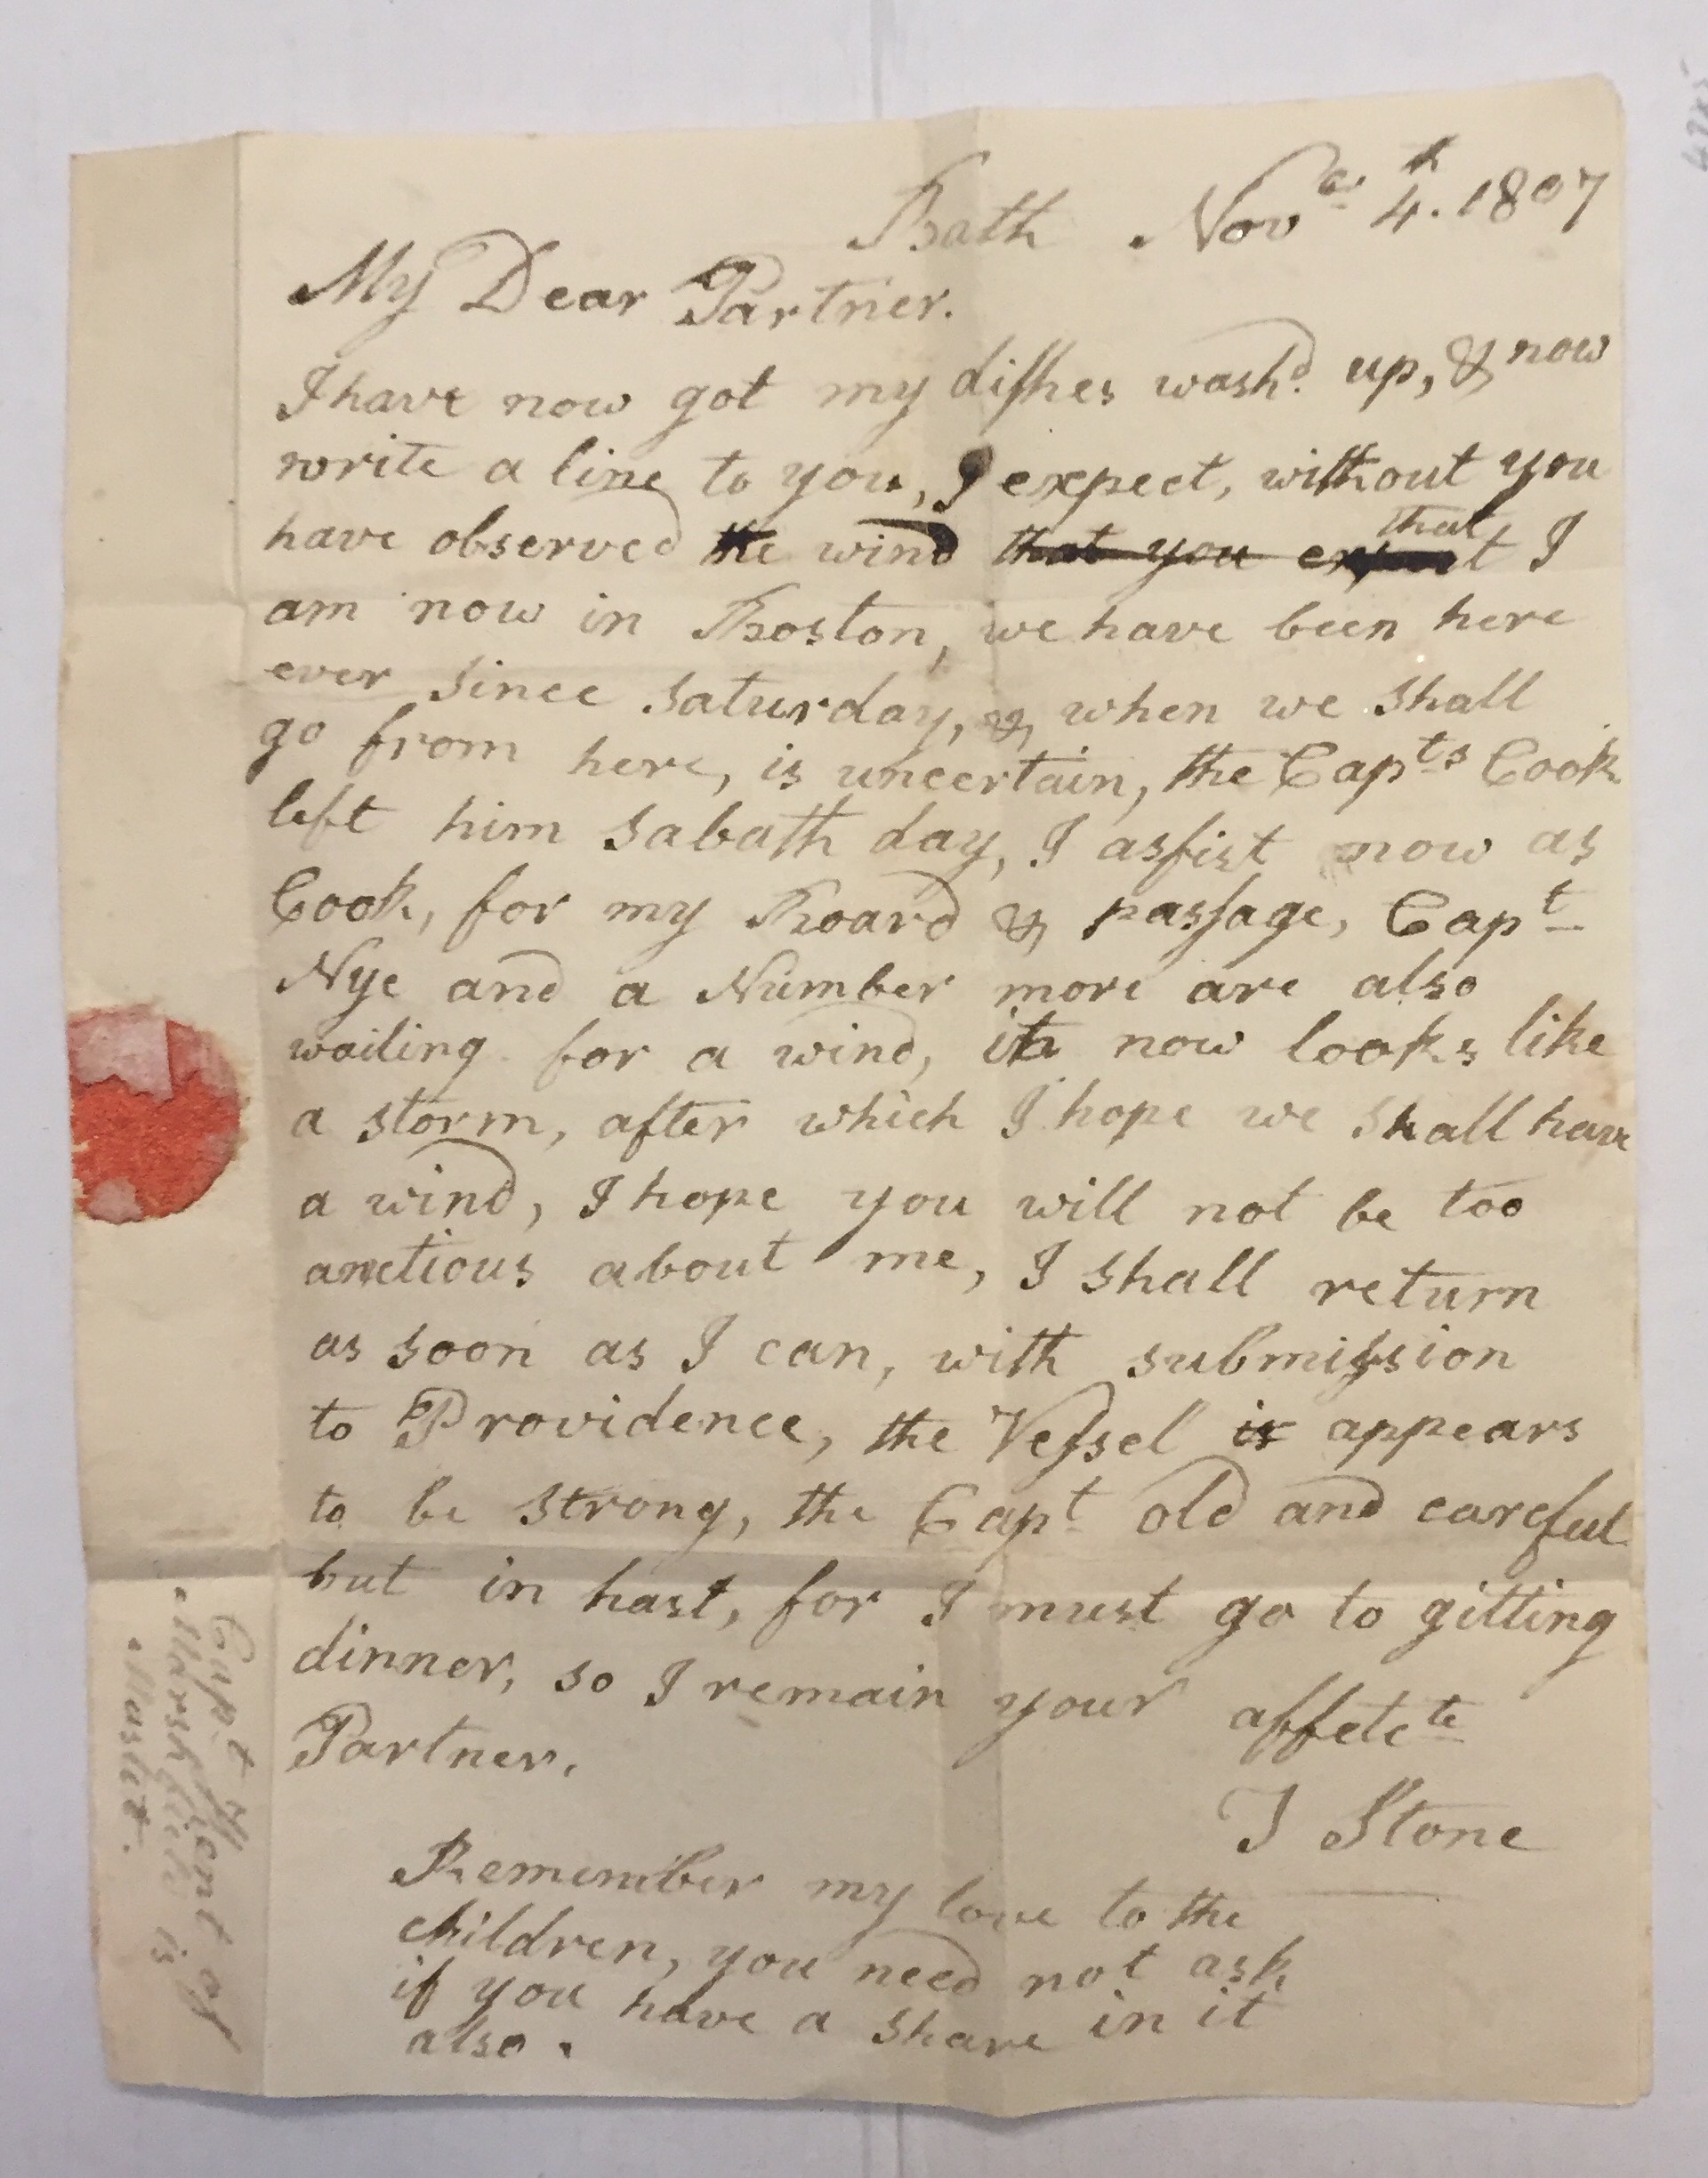 Bath Nov.er 4.th 1807
My Dear Partner.
I have now got my dishes wash.d up, & now
write a line to you, I expect, without you
have observed the wind that you expect that I
am now in Boston, we have been here
ever since saturday, & when we shall
go from here, is uncertain, the Capts Cook
left him sabath day, I assist now as
Cook, for my Board & passage, Capt
Nye and a Number more are also
waiting for a wind, it now looks like
a storm, after which I hope we shall have
a wind, I hope you will not be too
anctious about me, I shall return
as soon as I can, with submission
to Providence, the Vessel is appears
to be strong, the Capt old and careful
but in hast, for I must go to gitting
dinner, so I remain your affetcte
Partner.
T Stone
Remember my love to the
children, you need not ask
if you have a share in it
also.
Capt Kent of
Marshfield is
Master.